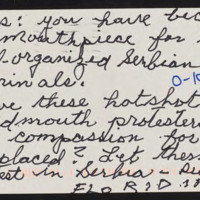 s: you have bec
mouthpiece for
l-organized Serbian
minals.
0-10
ve these hotshot
dmouth protester
compassion for
placed? Let them
est in Serbia -